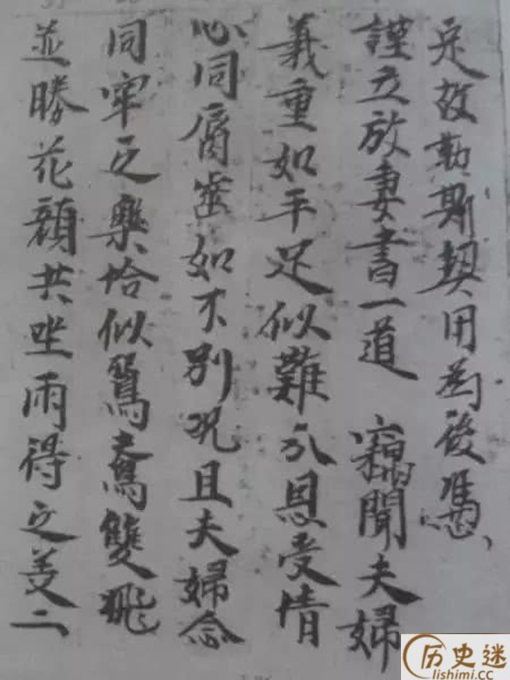 是故勒斯契用為後憑
謹立放妻書一道 竊聞夫婦
義重如手足似難分恩受情
心同脣齒如不別況且夫婦念
同牢之樂恰似鴛鴦雙飛
並勝花顏共坐兩得之美二
历史迷
lishimi.cc